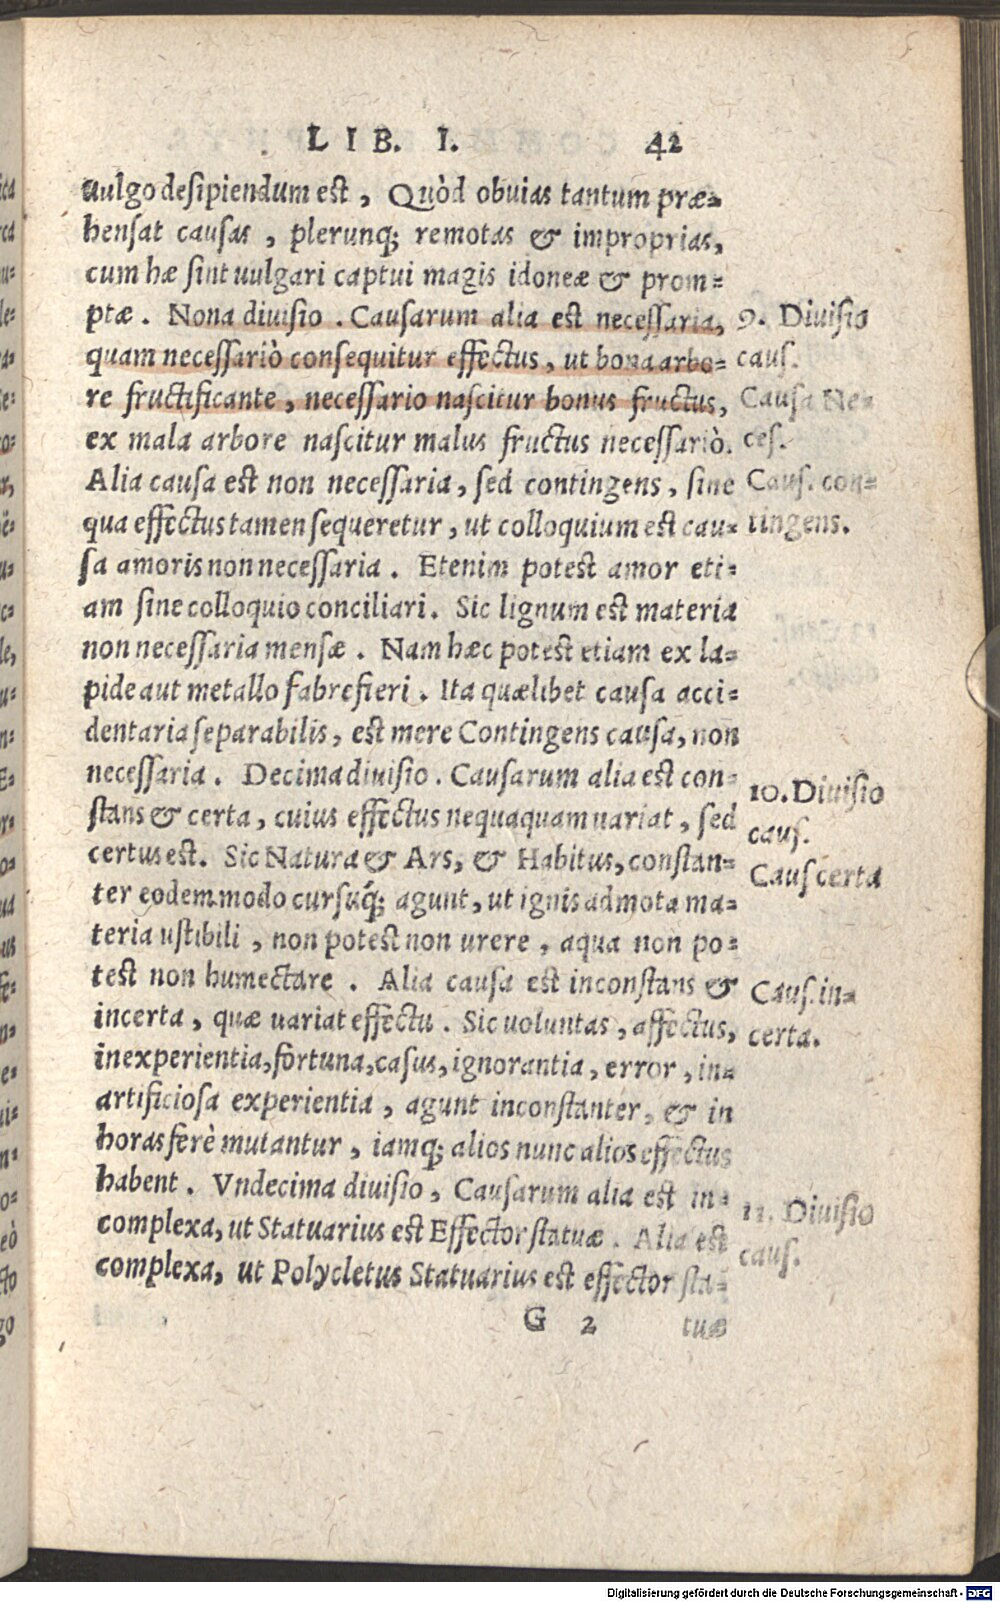 LIB. I. 42
uulgo desipiendum est, Quòd obuias tantum præ-
hensat causas, plerunq; remotas & improprias,
cum hæ sint uulgari captui magis idoneæ & prom-
ptæ. Nona diuisio. Causarum alia est necessaria,
quam necessariò consequitur effectus, ut bona arbo-
re fructificante, necessario nascitur bonus fructus,
ex mala arbore nascitur malus fructus necessariò.
Alia causa est non necessaria, sed contingens, sine
qua effectus tamen sequeretur, ut colloquium est cau-
sa amoris non necessaria. Etenim potest amor eti-
am sine colloquio conciliari. Sic lignum est materia
non necessaria mensæ. Nam hæc potest etiam ex la-
pide aut metallo fabrefieri. Ita quælibet causa acci-
dentaria separabilis, est mere Contingens causa, non
necessaria. Decima diuisio. Causarum alia est con-
stans & certa, cuius effectus nequaquam uariat, sed
certus est. Sic Natura & Ars, & Habitus, constan-
ter eodem modo cursuq́; agunt, ut ignis admota ma-
teria ustibili, non potest non urere, aqua non po-
test non humectare. Alia causa est inconstans &
incerta, quæ uariat effectū. Sic uoluntas, affectus,
inexperientia, fortuna, casus, ignorantia, error, in-
artificiosa experientia, agunt inconstanter, & in
horas ferè mutantur, iamq; alios nunc alios effectus
habent. Vndecima diuisio, Causarum alia est in-
complexa, ut Statuarius est Effector statuæ. Alia est
complexa, ut Polycletus Statuarius est effector sta-
G 2 tuæ
9. Diuisio
caus.
Causa Ne-
ces.
Caus. con-
tingens.
10. Diuisio
caus.
Caus certa
Caus. in-
certa.
11. Diuisio
caus.
Digitalisierung gefördert durch die Deutsche Forschungsgemeinschaft - DFG